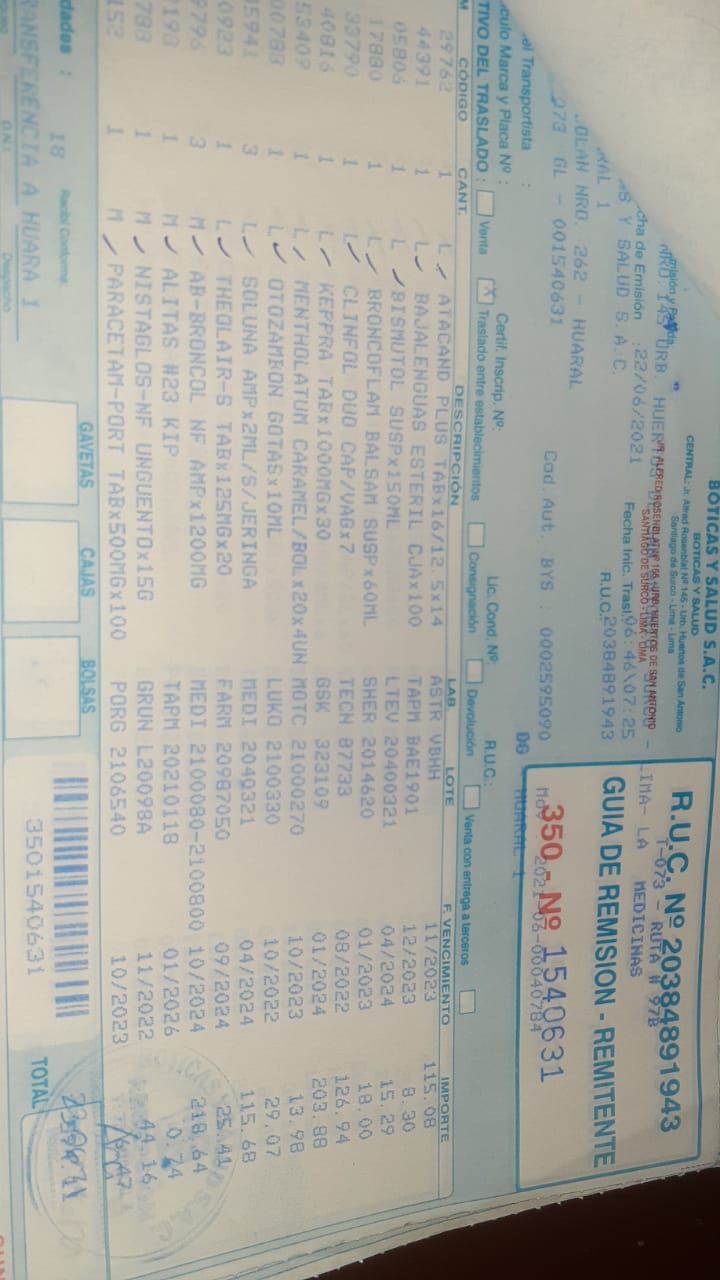 BOTICAS Y SALUD S.A.C.
BOTICAS Y SALUD
CENTRAL: Jr. Alfred Rosenblat Nº 145 - Urb. Huertos de San Antonio
Santiago de Surco - Lima - Lima
JR. ALFRED ROSENBLAT Nº 155 - URB. HUERTOS DE SAN ANTONIO
SANTIAGO DE SURCO - LIMA - LIMA
NRO. 145 URB. HUERTOS
LIMA- LA
cha de Emisión : 22/06/2021 Fecha Inic. Trasl. 06:46\07:25
AS Y SALUD S.A.C. R.U.C. 20384891943
RAL 1
OLAN NRO. 262 - HUARAL
073 GL - 001540631 Cod.Aut. BYS : 0002595090
R.U.C. Nº 20384891943
T-073 - RUTA # 97B
MEDICINAS
GUIA DE REMISION - REMITENTE
350 - Nº 1540631
2021-06-00040784
DG HUARAL 1
al Transportista : R.U.C.:
culo Marca y Placa Nº : Certif. Inscrip. Nº: Lic. Cond. Nº:
TIVO DEL TRASLADO : Venta X Traslado entre establecimientos Consignación Devolución Venta con entrega a terceros
M CÓDIGO CANT. DESCRIPCIÓN LAB LOTE F. VENCIMIENTO IMPORTE
29762 1 L ATACAND PLUS TABx16/12.5x14 ASTR VBHH 11/2023 115.08
44391 1 L BAJALENGUAS ESTERIL CJAx100 TAPM BAE1901 12/2023 8.30
05806 1 L BISMUTOL SUSPx150ML LTEV 20400321 04/2024 15.29
17880 1 L BRONCOFLAM BALSAM SUSPx60ML SHER 2014620 01/2023 18.00
33790 1 L CLINFOL DUO CAP/VAGx7 TECN 87733 08/2022 126.94
40816 1 L KEPPRA TABx1000MGx30 GSK 323109 01/2024 203.88
53409 1 L MENTHOLATUM CARAMEL/BOLx20x4UN MOTC 21000270 10/2023 13.98
00783 1 L OTOZAMBON GOTASx10ML LUKO 2100330 10/2022 29.07
05941 3 L SOLUNA AMPx2ML/S/JERINGA MEDI 2040321 04/2024 115.68
0923 1 L THEOLAIR-S TABx125MGx20 FARM 20987050 09/2024 25.41
9796 3 M AB-BRONCOL NF AMPx1200MG MEDI 2100080-2100800 10/2024 218.64
193 1 M ALITAS #23 KIP TAPM 20210118 01/2026 0.74
788 1 M NISTAGLOS-NF UNGUENTOx15G GRUN L20098A 11/2022 44.16
152 1 M PARACETAM-PORT TABx500MGx100 PORG 2106540 10/2023
dades : 18 Recibí Conforme GAVETAS CAJAS BOLSAS TOTAL
RANSFERENCIA A HUARA 1 3501540631
D.N.I. Despacho